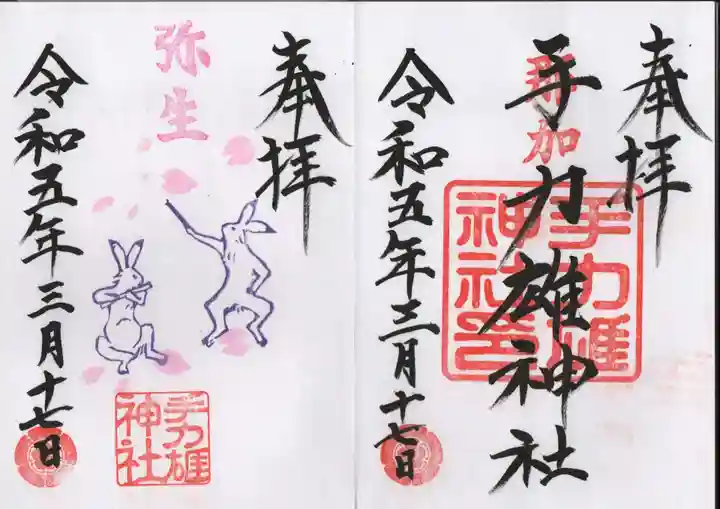 奉拝
手力雄神社
那加
手力雄
神社印
令和五年三月十七日
奉拝
弥生
手力雄
神社
令和五年三月十七日